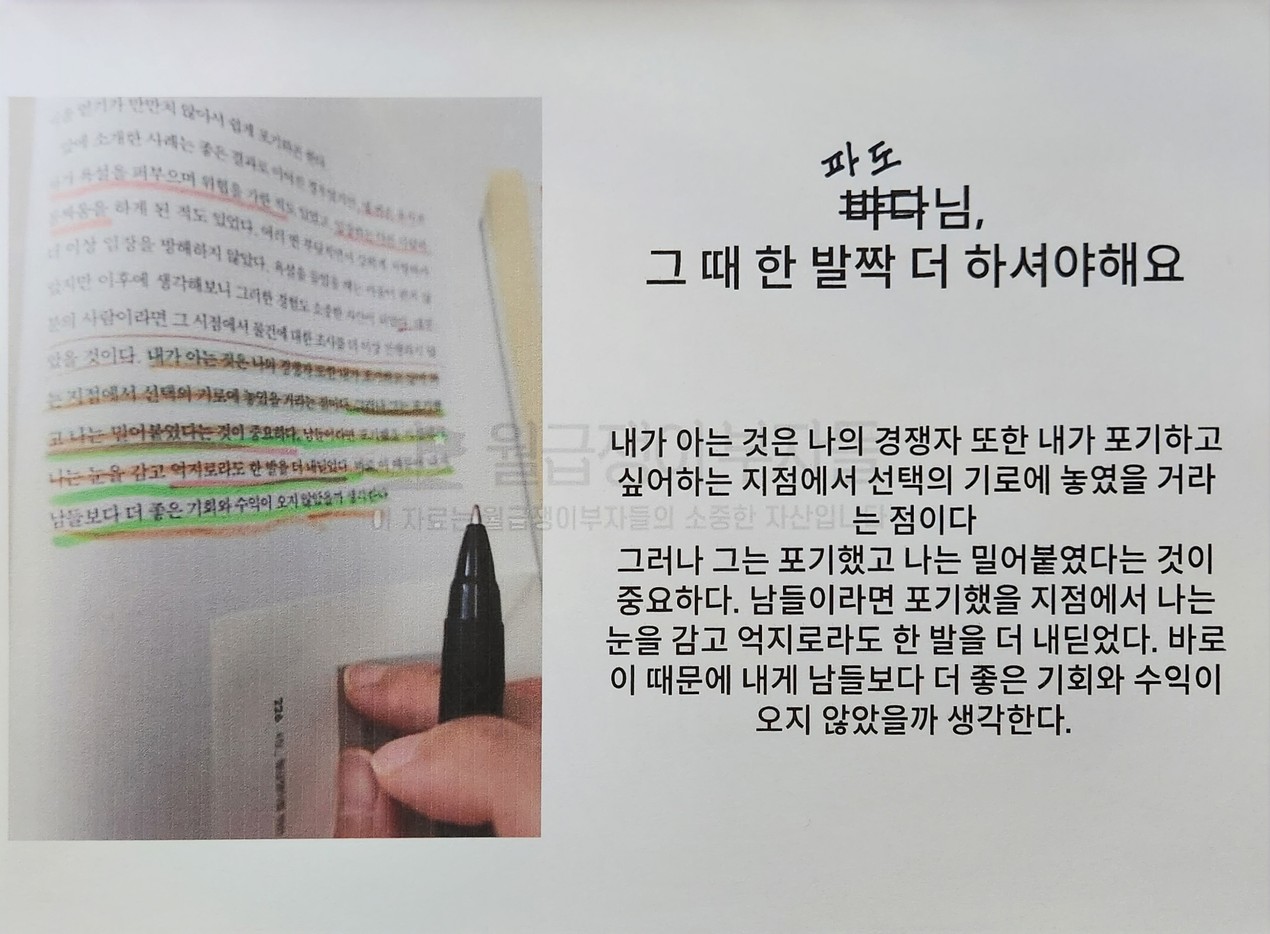 앞에 소개한 사례는 좋은 결과로 이어진 경우였지만,
욕설을 퍼부으며 위협을 가한 적도 있었고,
하게 된 적도 있었다.
더 이상 입장을 방해하지 않았다.
이후에 생각해보니 그러한 경험도 소중한 자산이 되었다.
분의 사람이라면 그 시점에서 물건에 대한 조사를 더 이상 진행하지 않
았을 것이다. 내가 아는 것은 나의 경쟁자 또한 내가 포기하고 싶어 하
는 지점에서 선택의 기로에 놓였을 거라는 점이다. 그러나 그는 포기했
고 나는 밀어붙였다는 것이 중요하다. 남들이라면 포기했을 지점에서
나는 눈을 감고 억지로라도 한 발을 더 내딛었다. 바로 이 때문에 내게
남들보다 더 좋은 기회와 수익이 오지 않았을까 생각한다.
226
파도
뺘다님,
그 때 한 발짝 더 하셔야해요
월급쟁이부자들
이 자료는 월급쟁이부자들의 소중한 자산입니다
내가 아는 것은 나의 경쟁자 또한 내가 포기하고
싶어하는 지점에서 선택의 기로에 놓였을 거라
는 점이다
그러나 그는 포기했고 나는 밀어붙였다는 것이
중요하다. 남들이라면 포기했을 지점에서 나는
눈을 감고 억지로라도 한 발을 더 내딛었다. 바로
이 때문에 내게 남들보다 더 좋은 기회와 수익이
오지 않았을까 생각한다.